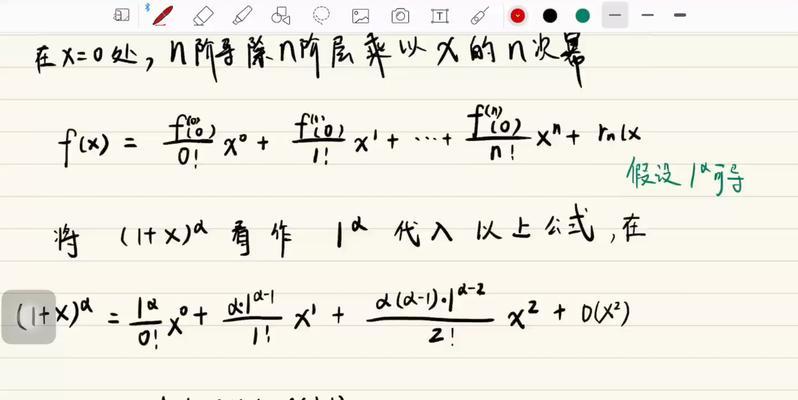 在x=0处，n阶导除n阶层乘以x的n次幂
f(x) = f⁽⁰⁾(0)/0! x⁰ + f⁽¹⁾(0)/1! x¹ + ··· + f⁽ⁿ⁾(0)/n! xⁿ + rₙ(x
假设 1^α可导
将 (1+x)^α 看作 1^α 代入以上公式,在
(1+x)^α = 1^α/0! x⁰ + α·1^(α-1)/1! x¹ + α(α-1)·1^(α-2)/2! x² + o(x²)